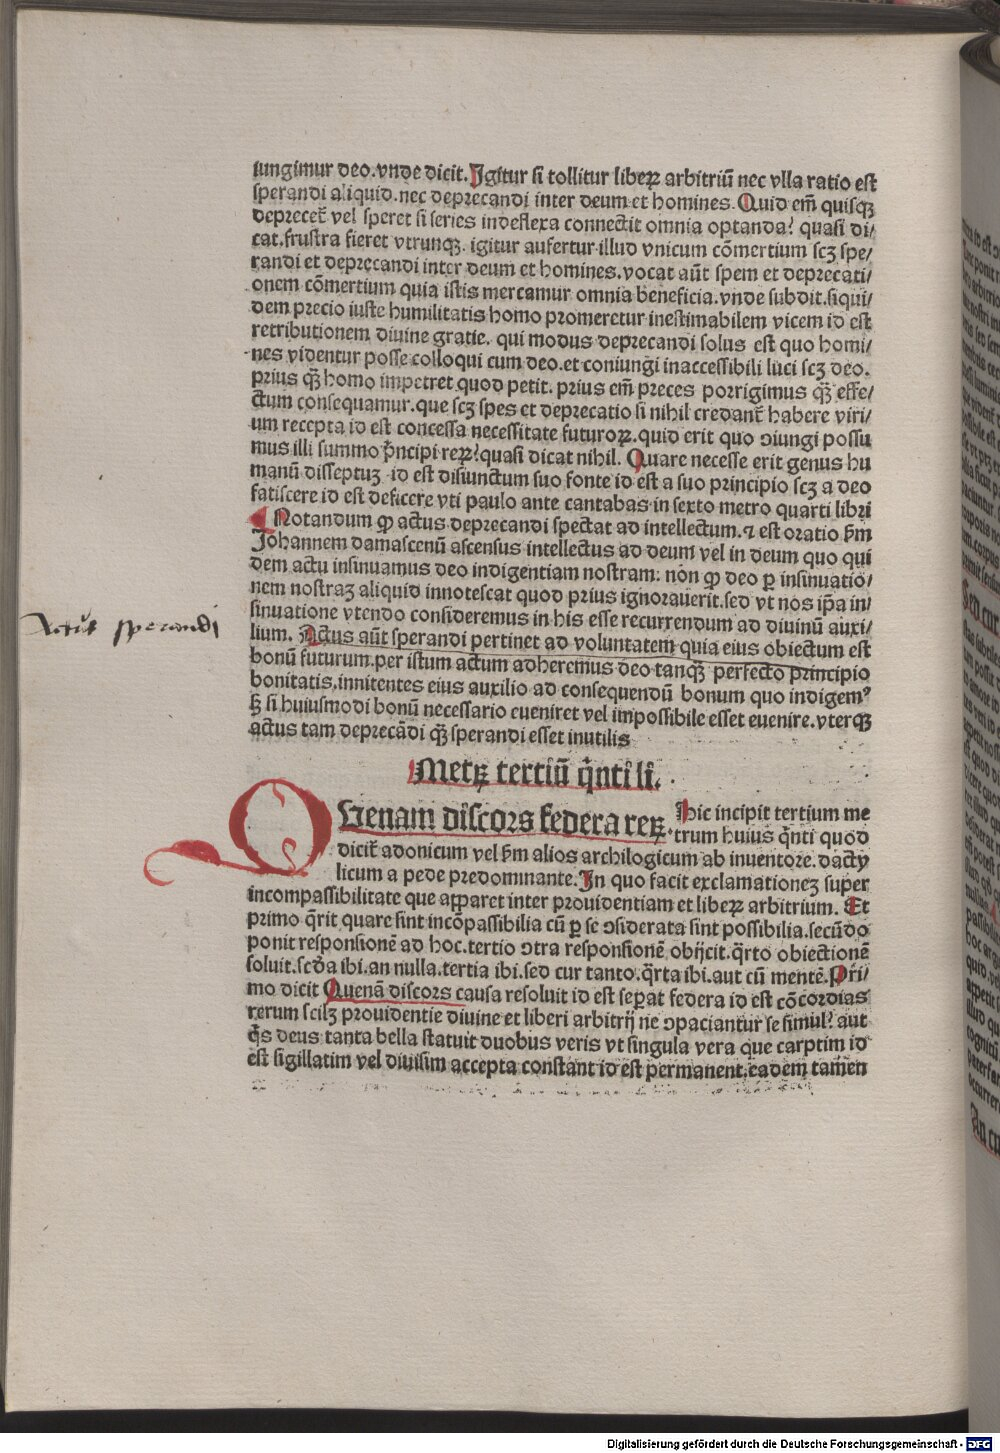 iungimur deo. vnde dicit. Igitur si tollitur liberꝝ arbitriū nec vlla ratio est
sperandi aliquid. nec deprecandi inter deum et homines. Quid em̄ quisqꝫ
deprecet᷑ vel speret si series indeflexa connectit omnia optanda? quasi di/
cat. frustra fieret vtrunqꝫ. igitur aufertur illud vnicum cōmertium scꝫ spe/
randi et deprecandi inter deum et homines. vocat aūt spem et deprecati/
onem cōmertium quia istis mercamur omnia beneficia. vnde subdit. siqui/
dem precio iuste humilitatis homo promeretur inestimabilem vicem id est
retributionem diuine gratie. qui modus deprecandi solus est quo homi/
nes videntur posse colloqui cum deo. et coniungi inaccessibili luci scꝫ deo.
prius qꝫ̄ homo impetret quod petit. prius em̄ preces porrigimus qꝫ̄ effe/
ctum consequamur. que scꝫ spes et deprecatio si nihil credant᷑ habere viri/
um recepta id est concessa necessitate futuroꝝ. quid erit quo ɔiungi possu
mus illi summo pͥncipi reꝝ? quasi dicat nihil. Quare necesse erit genus hu
manū disseptuꝫ id est disiunctum suo fonte id est a suo principio scꝫ a deo
fatiscere id est deficere vti paulo ante cantabas in sexto metro quarti libri
Notandum ꝙ actus deprecandi spectat ad intellectum. ⁊ est oratio ẜm
Johannem damascenū ascensus intellectus ad deum vel in deum quo qui
dem actu insinuamus deo indigentiam nostram: non ꝙ deo ꝑ insinuatio/
nem nostraꝫ aliquid innotescat quod prius ignorauerit. sed vt nos ip̄a in/
sinuatione vtendo consideremus in his esse recurrendum ad diuinū auxi/
Actus sperandi
lium. Actus aūt sperandi pertinet ad voluntatem quia eius obiectum est
bonū futurum. per istum actum adheremus deo tanqꝫ̄ perfecto principio
bonitatis. innitentes eius auxilio ad consequendū bonum quo indigemꝰ
ꝫ si huiusmodi bonū necessario eueniret vel impossibile esset euenire. vterqꝫ
actus tam deprecādi qꝫ̄ sperandi esset inutilis
Metꝝ tertiū q̄nti li.
QUenam discors federa reꝝ. Hic incipit tertium me
trum huius q̄nti quod
dicit᷑ adonicum vel ẜm alios archilogicum ab inuentore. dacty
licum a pede predominante. In quo facit exclamationeꝫ super
incompassibilitate que apparet inter prouidentiam et liberꝝ arbitrium. Et
primo q̄rit quare sint incōpassibilia cū ꝑ se ɔsiderata sint possibilia. secūdo
ponit responsionē ad hoc. tertio ɔtra responsionē obijcit. q̄rto obiectionē
soluit. sc̄da ibi. an nulla. tertia ibi. sed cur tanto. q̄rta ibi. aut cū mentē. Pri/
mo dicit Quenā discors causa resoluit id est seꝑat federa id est cōcordias
rerum scilꝫ prouidentie diuine et liberi arbitrij ne ɔpaciantur se simul? aut
q̄s deus tanta bella statuit duobus veris vt singula vera que carptim id
est sigillatim vel diuisim accepta constant id est permanent. eadem tamen
Digitalisierung gefördert durch die Deutsche Forschungsgemeinschaft - DFG